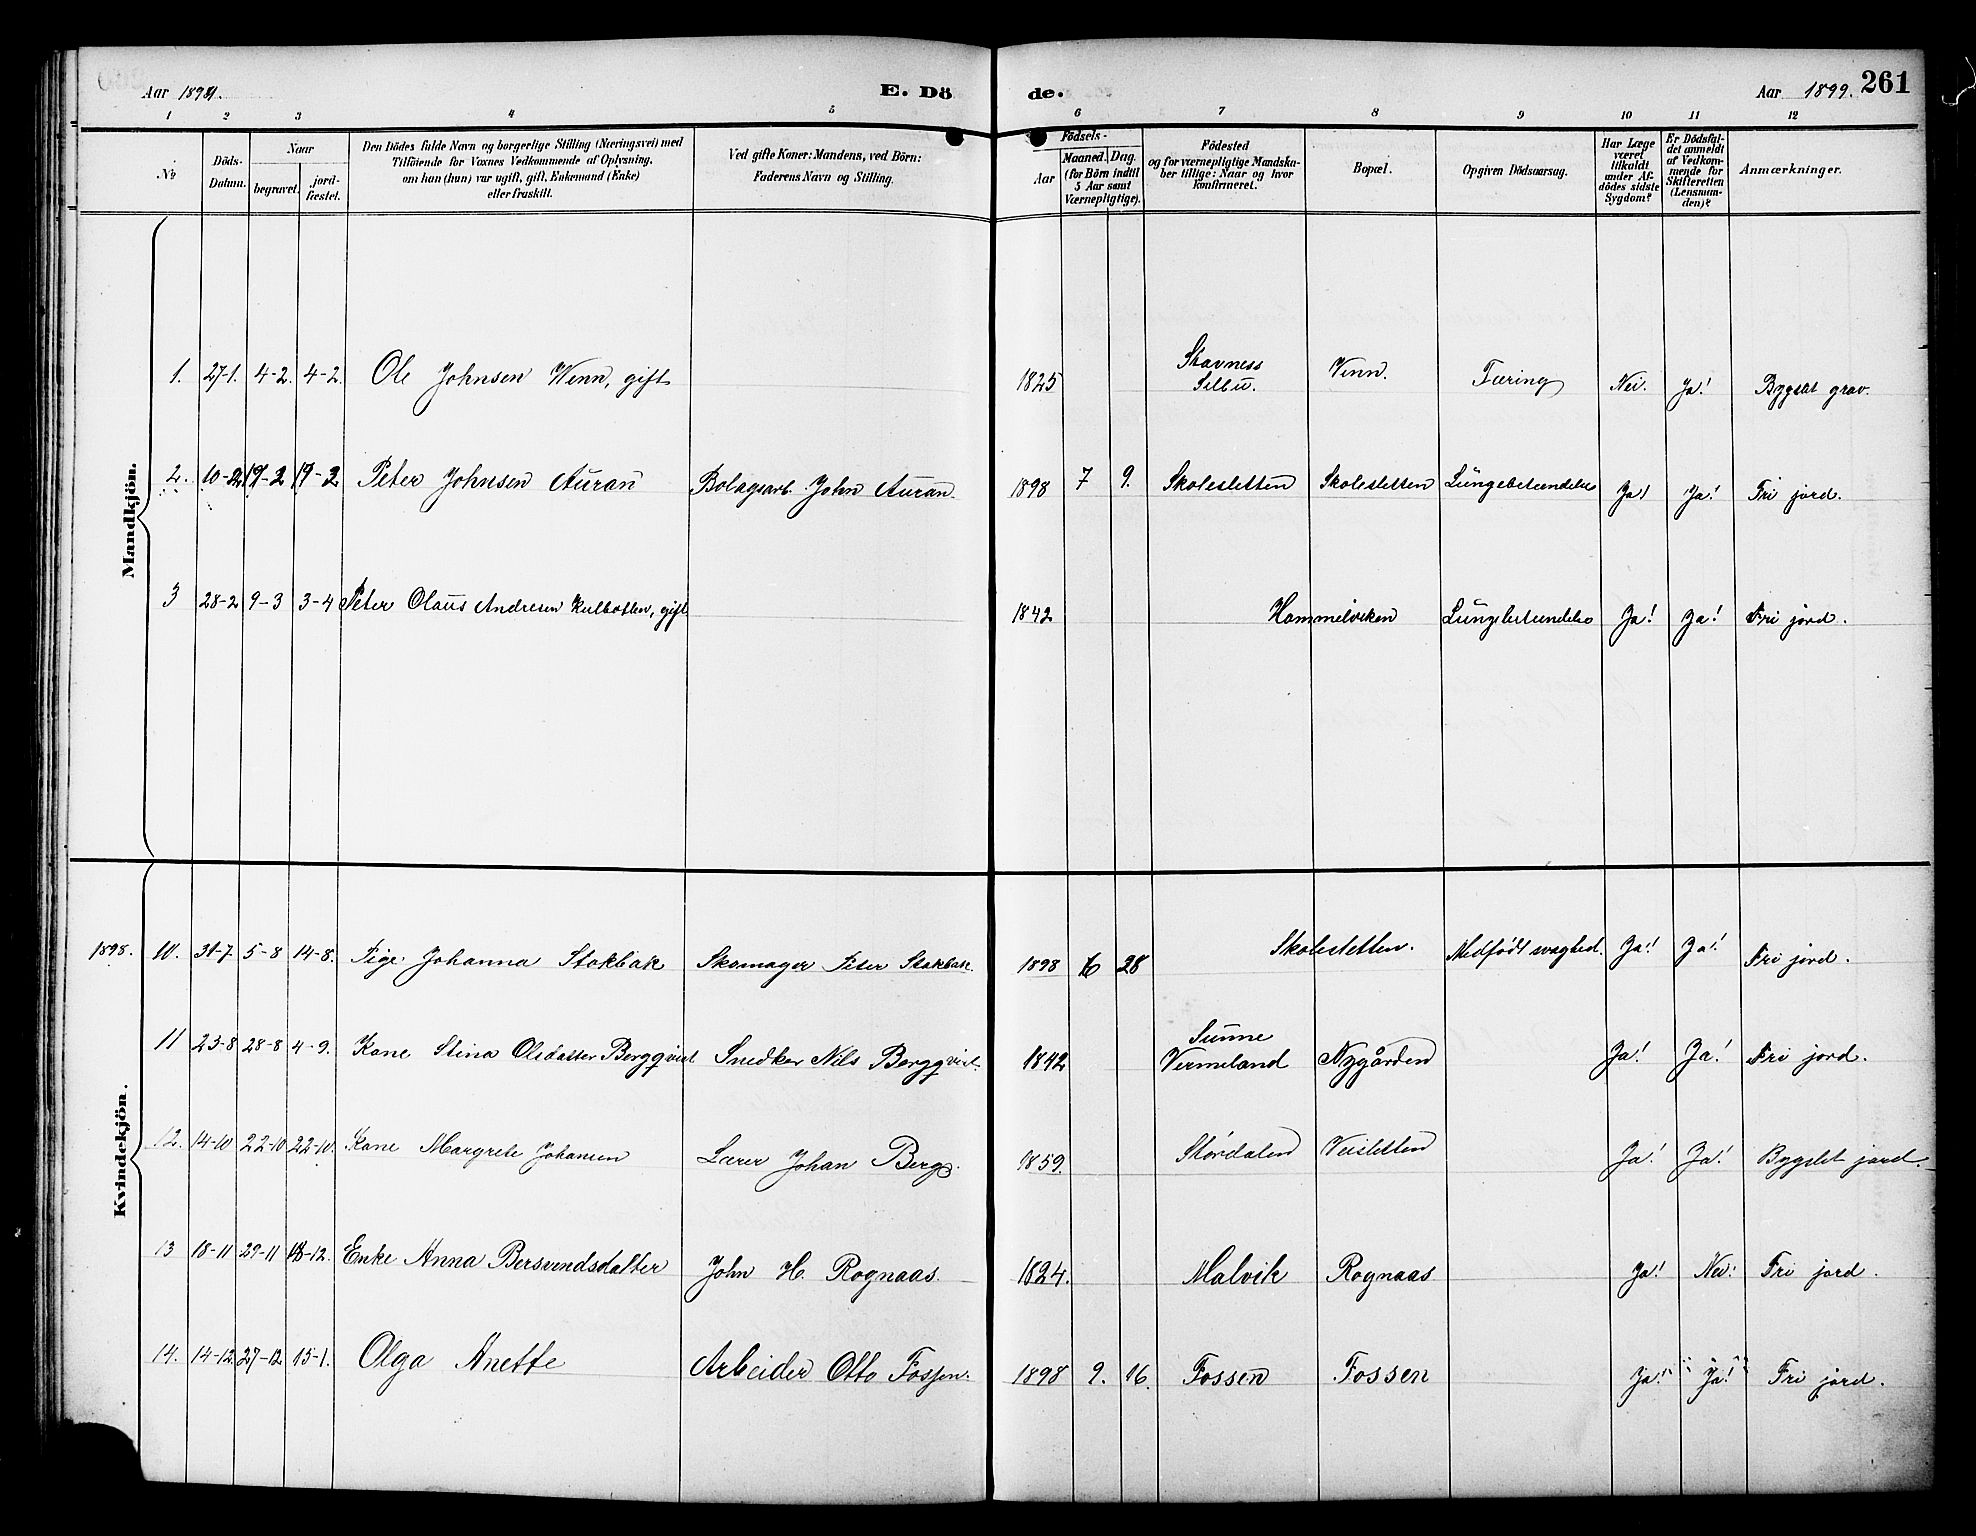 Aar 1899.
E. Dö
de.
Aar 1899.
261
1 2 3 4 5 6 7 8 9 10 11 12
№
Döds-
Datum.
Naar
begravet.
jord-
fæstet.
Den Dödes fulde Navn og borgerlige Stilling (Næringsvei) med
Tilföiende for Voxnes Vedkommende af Oplysning,
om han (hun) var ugift, gift, Enkemand (Enke)
eller fraskilt.
Ved gifte Koner: Mandens, ved Börn:
Faderens Navn og Stilling.
Födsels-
Aar
Maaned. Dag.
(for Börn indtil
5 Aar samt
Værnepligtige).
Födested
og for værnepligtige Mandska-
ber tillige: Naar og hvor
konfirmeret.
Bopæl.
Opgiven Dödsaarsag.
Har Læge
været
tilkaldt
under Af-
dödes sidste
Sygdom?
Er Dödsfal-
det anmeldt
af Vedkom-
mende for
Skifteretten
(Lensman-
den)?
Anmærkninger.
Mandkjön.
1. 27-1. 4-2. 4-2. Ole Johnsen Wenn, gift 1825 Stavness Selbu. Venn. Tæring Nei. Ja! Bygslet grav.
2. 10-2 19-2 19-2 Peter Johnsen Auran Bolagsarb. John Auran. 1898 7 9. Skolesletten Skolesletten Lungebetændelse Ja! Ja! Fri jord.
3 28-2 9-3 3-4 Peter Olaus Andresen Kulbotten, gift 1842 Hommelviken Lungebetændelse Ja! Ja! Fri jord.
Kvindekjön.
1898. 10. 31-7 5-8 14-8. Pige Johanna Stokbak Skomager Peter Stokbak. 1898 6 28 Skolesletten. Medfödt svaghed. Ja! Ja! Fri jord.
11 23-8 28-8 4-9. Kone Stina Olsdatter Bergqvist Snedker Nils Bergqvist. 1842 Sunne Vermeland Nygården Ja! Ja! Fri jord.
12. 14-10 22-10 22-10. Kone Margrete Johansen Lærer Johan Berg. 1859. Stördalen Veisletten Ja! Ja! Bygslet jord.
13 18-11 29-11 18-12. Enke Anna Bersvendsdatter John H. Rognaas. 1824. Malvik Rognaas Ja! Nei! Fri jord.
14. 14-12 27-12 15-1. Olga Anette Arbeider Otto Fossen. 1898 9. 16. Fossen Fossen Ja! Ja! Fri jord.